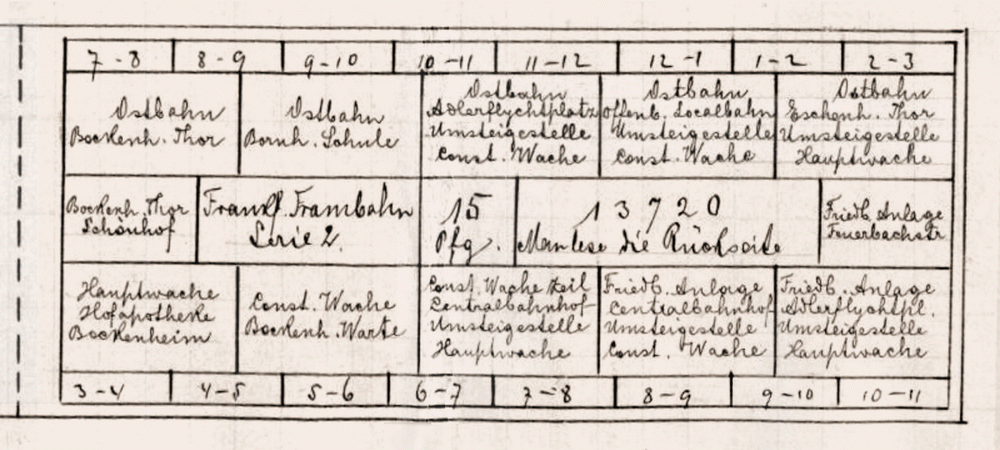 7-8 8-9 9-10 10-11 11-12 12-1 1-2 2-3
Ostbahn
Bockenh. Thor
Ostbahn
Bornh. Schule
Ostbahn
Adlerflychtplatz
Umsteigestelle
Const. Wache
Ostbahn
Offenb. Localbahn
Umsteigestelle
Const. Wache
Ostbahn
Eschenh. Thor
Umsteigestelle
Hauptwache
Bockenh. Thor
Schönhof
Frankf. Trambahn
Serie 2.
15
Pfg.
13720
Man lese die Rückseite
Friedb. Anlage
Feuerbachstr
Hauptwache
Hofapotheke
Bockenheim
Const. Wache
Bockenh. Warte
Const. Wache Zeil
Centralbahnhof
Umsteigestelle
Hauptwache
Friedb. Anlage
Centralbahnhof
Umsteigestelle
Const. Wache
Friedb. Anlage
Adlerflychtpl.
Umsteigestelle
Hauptwache
3-4 4-5 5-6 6-7 7-8 8-9 9-10 10-11